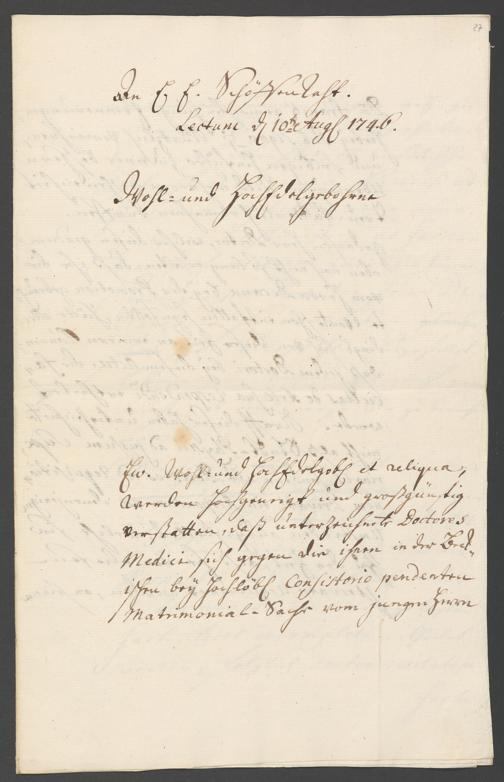 27
An E. E. Schöffen Raht.
Lectum d. 10te Aug. 1746.
Wohl- und HochEdelgebohrne
Ew. Wohl- und HochEdelgeb. et reliqua,
werden hochgeneigt und großgünstig
verstatten, daß unterzeichnete Doctores
Medici sich gegen die ihnen in der
ischen bey Hochlöbl. Consistorio pendenten
Matrimonial-Sache vom jungen Herrn